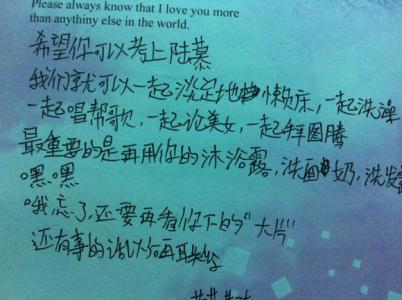 Please always know that I love you more
than anythiny else in the world.
希望你可以考上陆慕
我们就可以一起淡定地懒床，一起洗澡
一起唱帮歌，一起论美女，一起拜图腾
最重要的是再用你的沐浴露，洗面奶，洗发露
嘿嘿
哦忘了，还要再看你下的“大片”
还有事的话以后再联